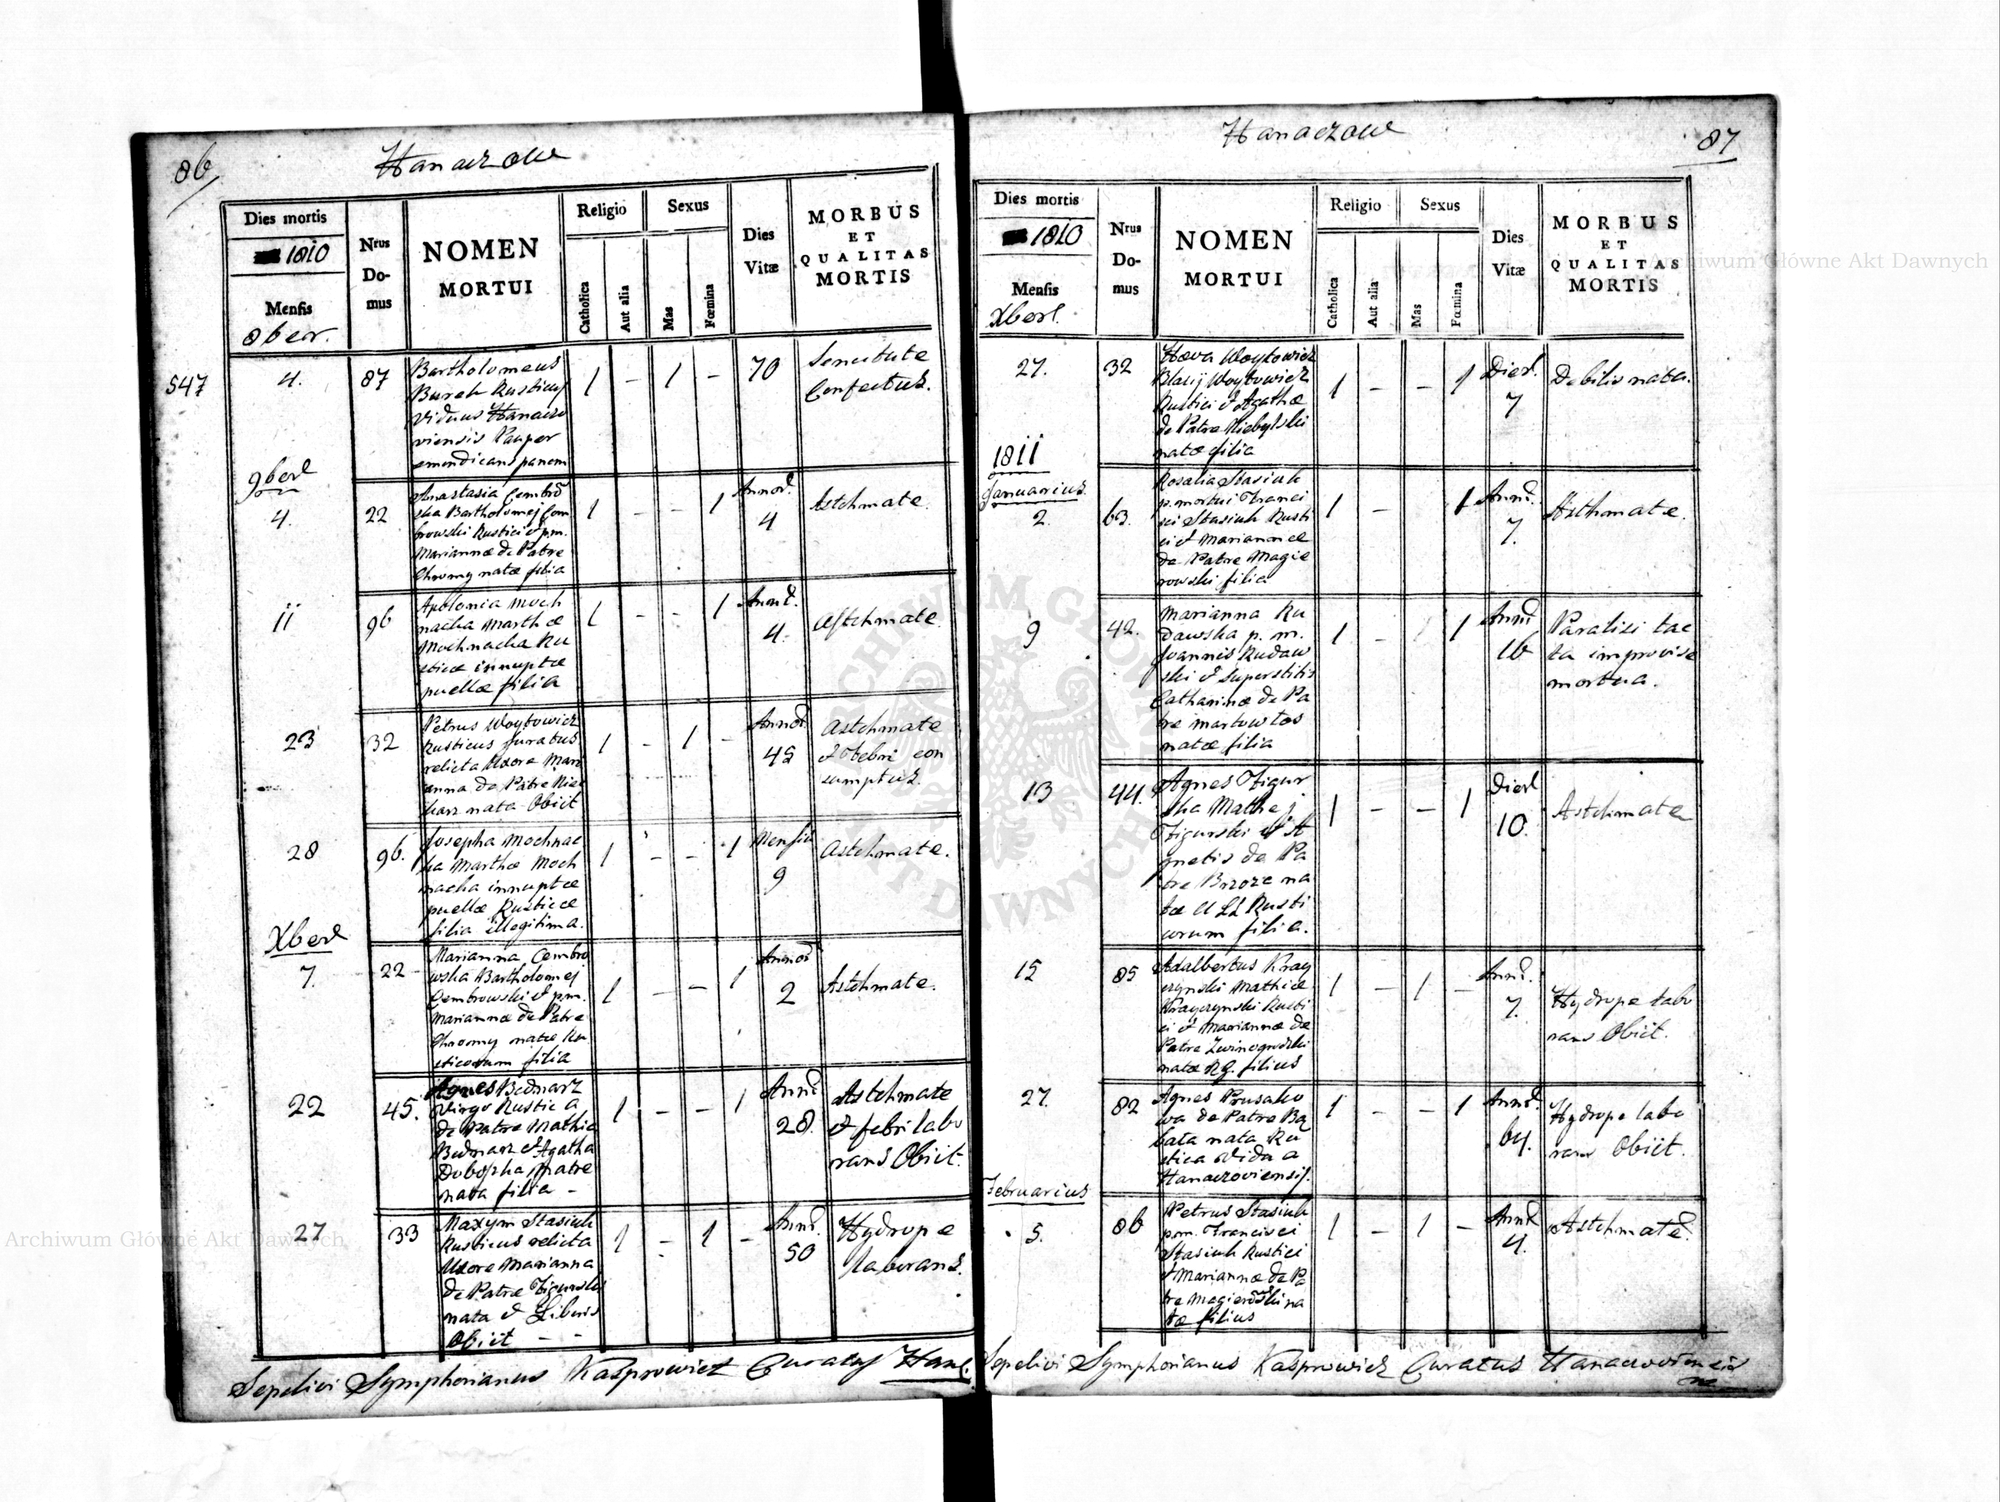 86
Hanaczow
Dies mortis
1810
Mensis
8beor.
Nrus
Do-
mus
NOMEN
MORTUI
Religio
Catholica
Aut alia
Sexus
Mas
Fœmina
Dies
Vitæ
MORBUS
ET
QUALITAS
MORTIS
547
4.
87
Bartholomeus
Burek Rusticus
Viduus Hanaczo
viensis Pauper
emendicans panem
1 – 1 –
70
Senectute
Confectus.
9berl
4.
22
Anastasia Cembro
ska Bartholomej Cem
browski Rustici et p.m.
Mariannæ de Patre
Chromy natæ filia
1 – – 1
Annor.
4
Astchmate.
11
96
Apolonia Moch
nacka Marthæ
Mochnacka Ru
sticæ innuptæ
puellæ filia
1 – – 1
Annor.
4.
Astchmate.
23
32
Petrus Woytowicz
Rusticus juratus
relicta Uxore Mari
anna de Patre
nata Obiit
1 – 1 –
Annor
45
Astchmate
et Febri con
sumptus.
28
96.
Josepha Mochnac
ka Marthæ Moch
nacka innuptæ
puellæ Rusticæ
filia illegitima.
1 – – 1
Mensiu
9
Astchmate.
Xberl
7.
22
Marianna Cembro
wska Bartholomej
Cembrowski et p.m.
Mariannæ de Patre
Chromy natæ Ru
sticorum filia
1 – – 1
Annor
2
Astchmate.
22
45.
Agnes Bednarz
Virgo Rustica
de Patre Mathia
Bednarz et Agatha
matre
nata filia –
1 – – 1
Annor
28.
Astchmate
et febri labo
rans Obiit.
27
33
Maxym Stasiuk
Rusticus relicta
Uxore Marianna
de Patre Figurski
nata et Liberis
Obiit – –
1 – 1 –
Annor.
50
Hydrope
laborans.
Sepelivi Symphorianus Kasprowicz Curatus Hanc.
87
Hanaczow
Dies mortis
1810
Mensis
Xberl.
Nrus
Do-
mus
NOMEN
MORTUI
Religio
Catholica
Aut alia
Sexus
Mas
Fœmina
Dies
Vitæ
MORBUS
ET
QUALITAS
MORTIS
27.
32
Hæva Woytowicz
Blasij Woytowicz
Rustici et Agathæ
de Patre Niebylski
natæ filia
1 – – 1
Dierl.
7
Debilis nata.
1811
Januarius
2.
63.
Rosalia Stasiuk
p. mortui Franci
sci Stasiuk Rusti
ci et Mariannæ
de Patre Magie
rowski filia
1 – 1
Annor.
7.
Asthmate.
9
42.
Marianna Ru
dawska p. m.
Joannis Rudaw
ski et Superstitis
Catharinæ de Pa
tre
natæ filia
1 – 1
Annor
16
Paralisi tac
ta improvise
mortua.
13
44.
Agnes Figur
ska Mathej
Figurski et A
gnetis de Pa
tre Brzoze na
tæ LL Rusti
corum filia.
1 – – 1
Dierl
10.
Astchmate
15
85
Adalbertus Kray
czynski Mathiæ
Krayczynski Rusti
ci et Mariannæ de
Patre Zwinogrodzki
natæ filius
1 – 1 –
Annor.
7.
Hydrope labo
rans Obiit.
27.
82
Agnes Prusako
wa de Patre Ba
bata nata Ru
stica Vidua
Hanaczoviensis.
1 – – 1
Annor.
64.
Hydrope labo
rans Obiit.
Februarius
5.
86
Petrus Stasiuk
p.m. Francisci
Stasiuk Rustici
et Mariannæ de Pa
tre Magierowski na
tæ filius
1 – 1 –
Annor
4.
Astchmate.
Sepelivi Symphorianus Kasprowicz Curatus Hanaczoviensis
Archiwum Główne Akt Dawnych
Archiwum Główne Akt Dawnych
ARCHIWUM GŁÓWNE AKT DAWNYCH